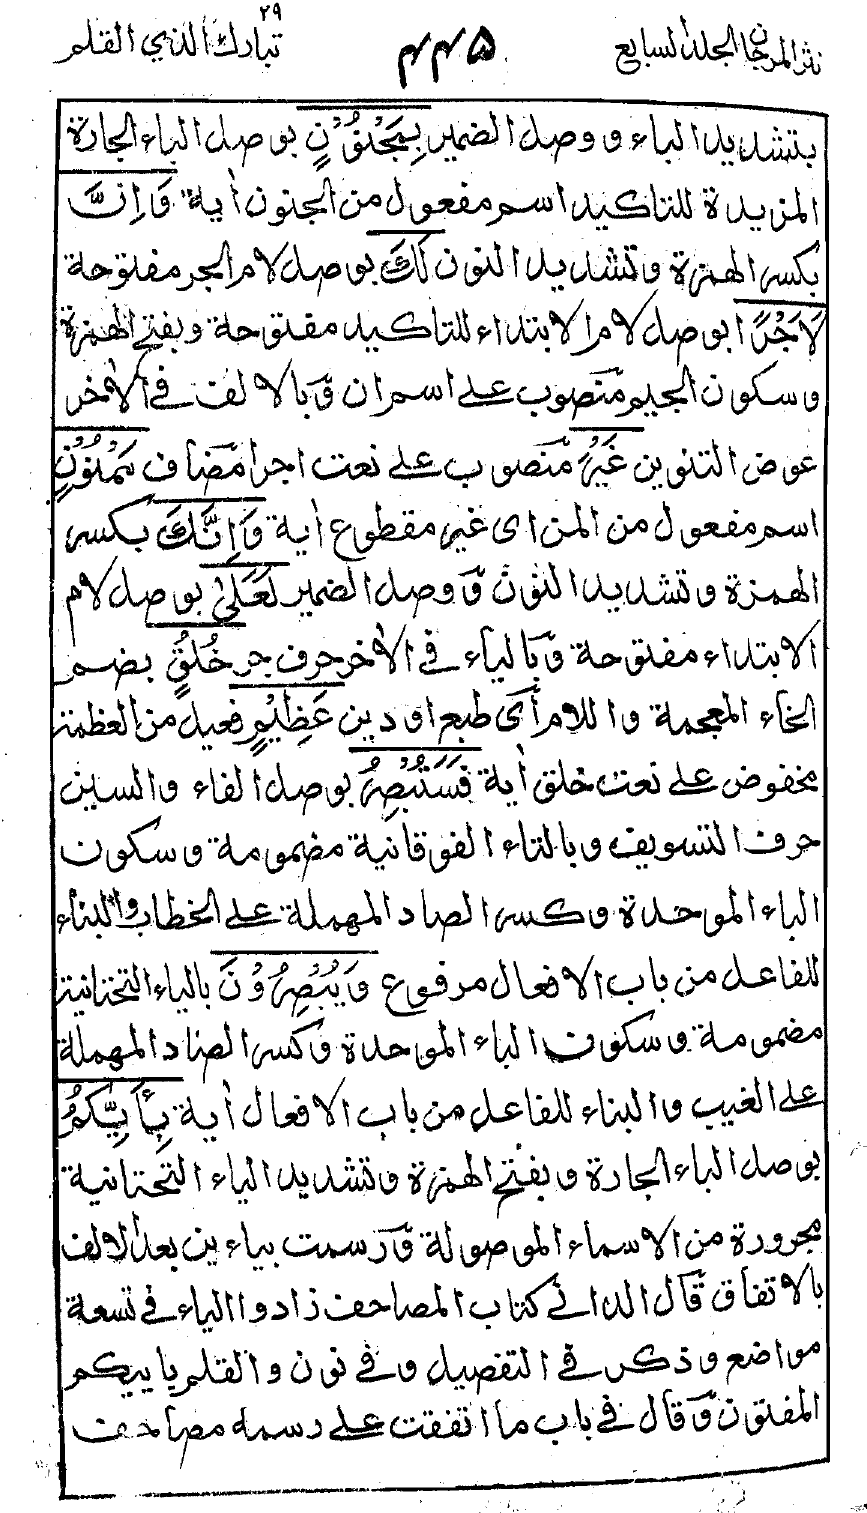 نثر المرجان الجلد السابع
٤٤٥
٢٩
تبارك الذي القلم
بتشديد الباء ووصل الضمير بِمَجْنُوْنٍ بوصل الباء الجارة
المزيدة للتاكيد اسم مفعول من الجنون أية وَاِنَّ
بكسر الهمزة وتشديد النون لَكَ بوصل لام الجر مفتوحة
لَاَجْرًا بوصل لام الابتداء للتاكيد مفتوحة وبفتح الهمزة
وسكون الجيم منصوب على اسم ان وبالالف في الأخر
عوض التنوين غَيْرَ منصوب على نعت اجرا مضاف مَمْنُوْنٍ
اسم مفعول من المن اى غير مقطوع أية وَاِنَّكَ بكسر
الهمزة وتشديد النون ووصل الضمير لَعَلٰى بوصل لام
الابتداء مفتوحة وبالياء في الأخر حرف جر خُلُقٍ بضم
الخاء المعجمة واللام أى طبع او دين عَظِيْمٍ فعيل من العظمة
مخفوض على نعت خلق أية فَسَتُبْصِرُ بوصل الفاء والسين
حرف التسويف وبالتاء الفوقانية مضمومة وسكون
الباء الموحدة وكسر الصاد المهملة على الخطاب والبناء
للفاعل من باب الافعال مرفوع وَيُبْصِرُوْنَ بالياء التحتانية
مضمومة وسكون الباء الموحدة وكسر الصاد المهملة
على الغيب والبناء للفاعل من باب الافعال أية بِاَيِّيكُمُ
بوصل الباء الجارة وبفتح الهمزة وتشديد الياء التحتانية
مجرورة من الاسماء الموصولة ورسمت بياءين بعد الالف
بالاتفاق قال الداني كتاب المصاحف زادوا الياء في تسعة
مواضع وذكر في التفصيل وفي نون والقلم باييكم
المفتون وقال في باب ما اتفقت على رسمه مصاحف